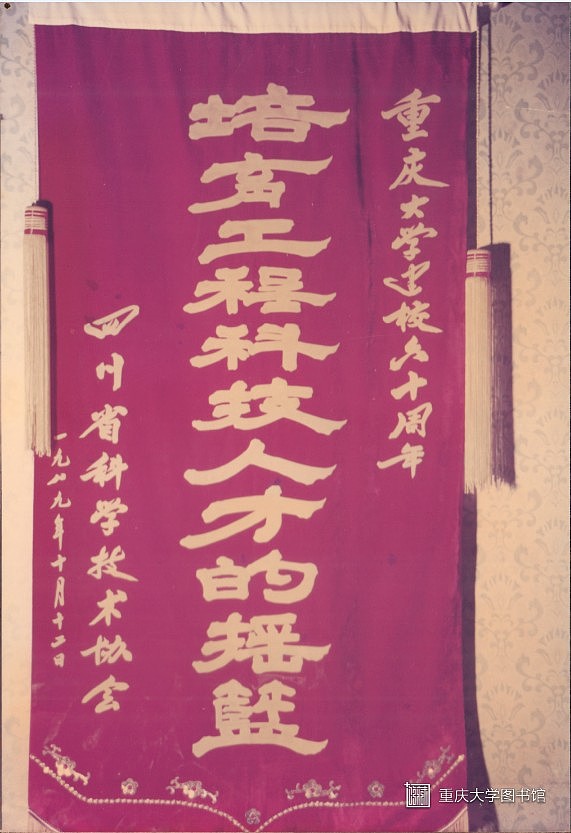 重庆大学建校六十周年
培育工程科技人才的摇篮
四川省科学技术协会
一九八九年十月十二日
重庆大学图书馆